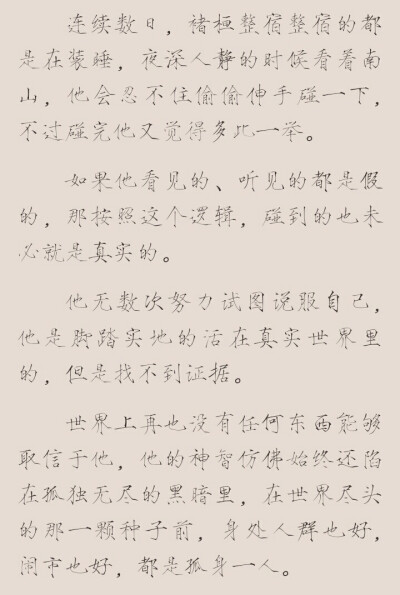 连续数日，褚桓整宿整宿的都
是在装睡，夜深人静的时候看着南
山，他会忍不住偷偷伸手碰一下，
不过碰完他又觉得多此一举。
如果他看见的、听见的都是假
的，那按照这个逻辑，碰到的也未
必就是真实的。
他无数次努力试图说服自己，
他是脚踏实地的活在真实世界里
的，但是找不到证据。
世界上再也没有任何东西能够
取信于他，他的神智仿佛始终还陷
在孤独无尽的黑暗里，在世界尽头
的那一颗种子前，身处人群也好，
闹市也好，都是孤身一人。